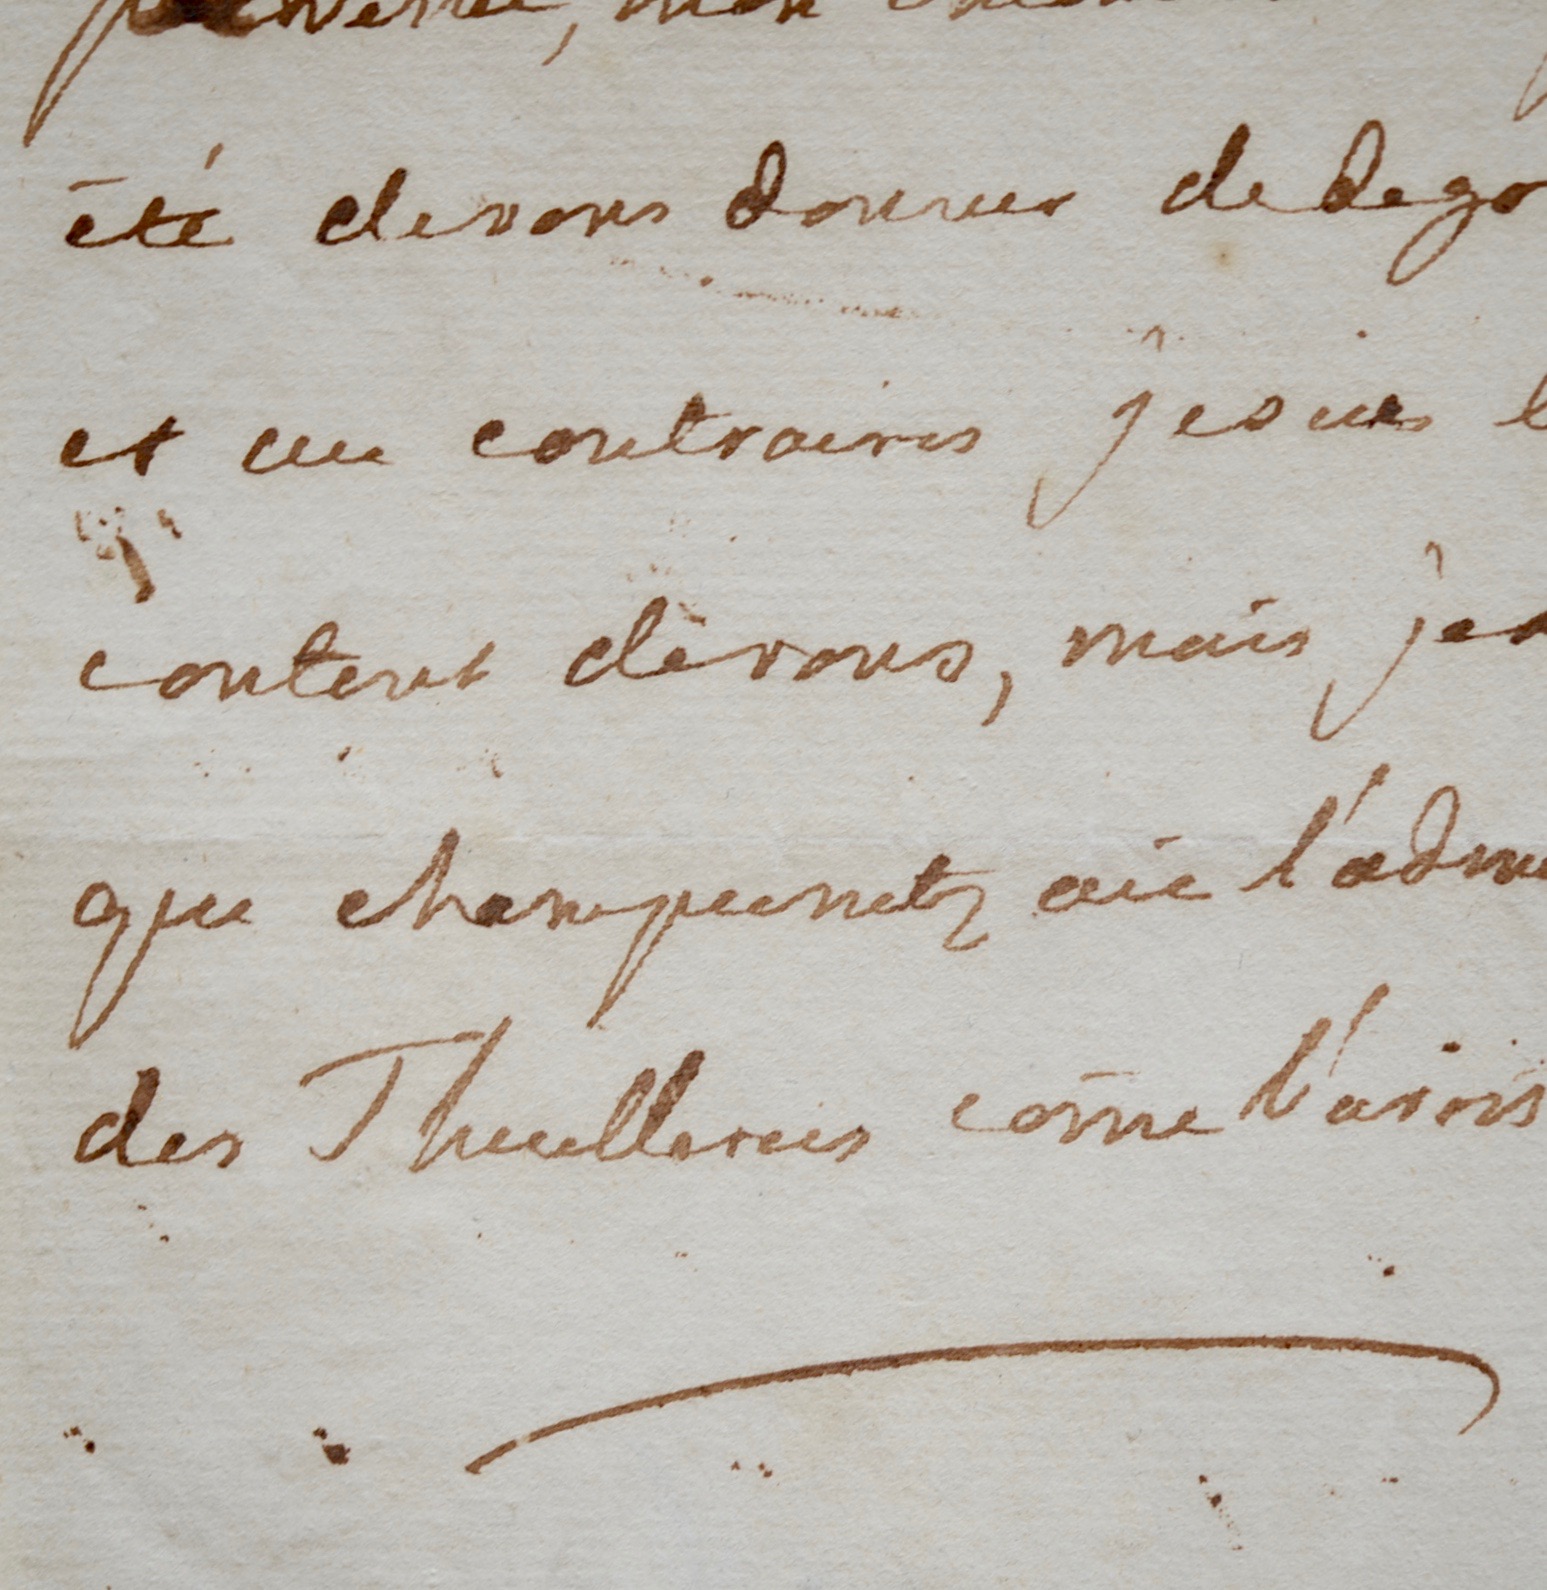 mon
été devous donner de dego
et au contraires jesuis
content devous, mais je
que champcenetz aie l'adm
des Thuilleries come l'avois